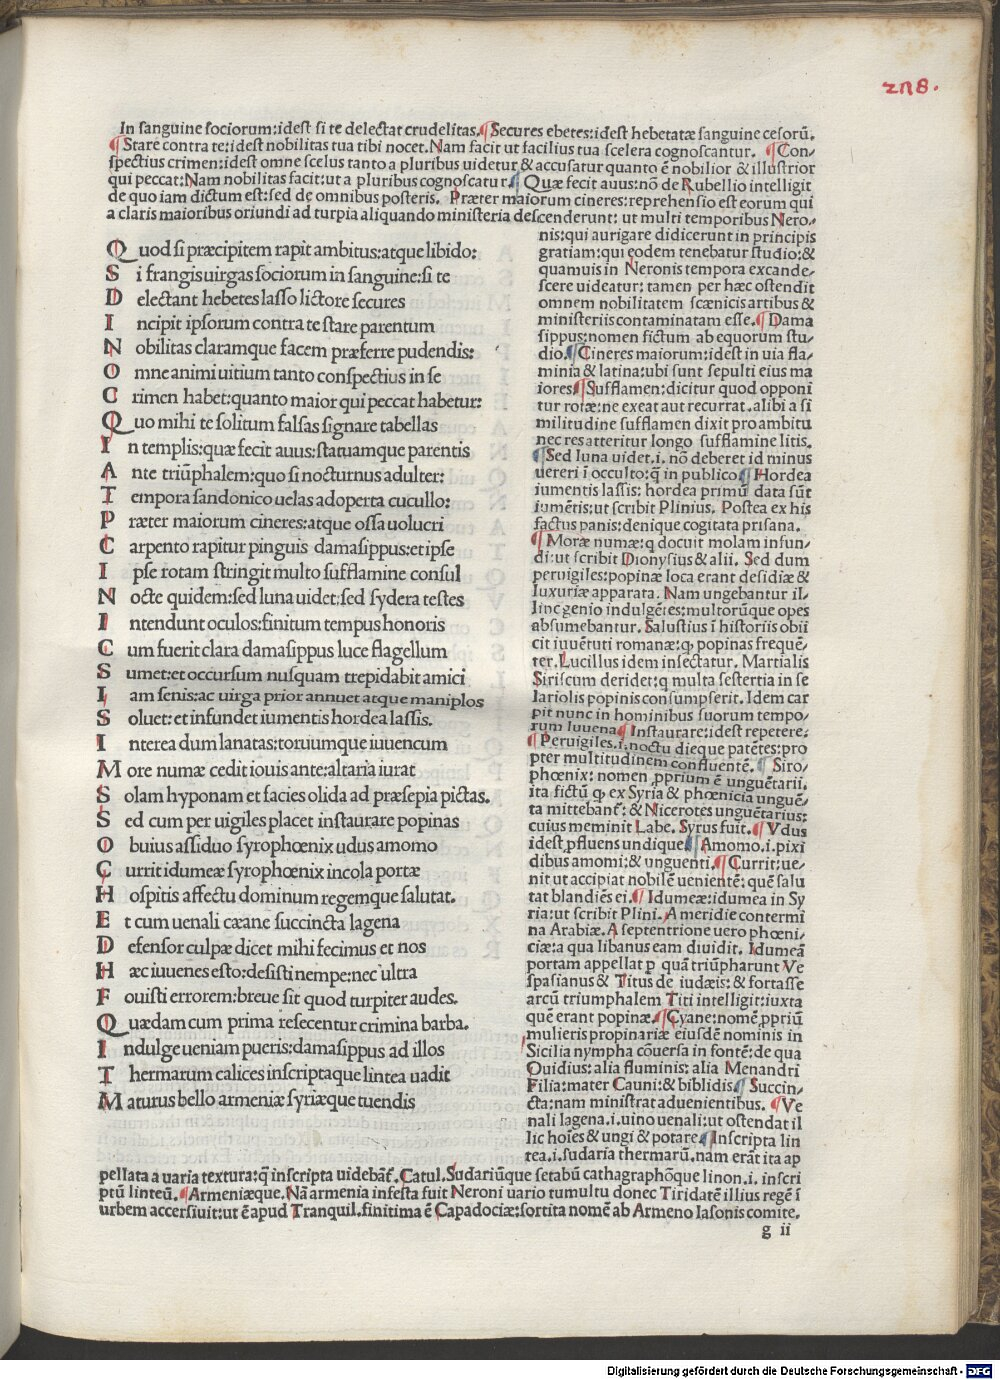 278.
In sanguine sociorum:idest si te delectat crudelitas.¶Secures ebetes:idest hebetatæ sanguine cesorũ.
¶Stare contra te:idest nobilitas tua tibi nocet.Nam facit ut facilius tua scelera cognoscantur. ¶Con-
spectius crimen:idest omne scelus tanto a pluribus uidetur & accusatur quanto ẽ nobilior & illustrior
qui peccat:Nam nobilitas facit:ut a pluribus cognoscatur.¶Quæ fecit auus:nõ de Rubellio intelligit
de quo iam dictum est:sed de omnibus posteris. Præter maiorum cineres:reprehensio est eorum qui
a claris maioribus oriundi ad turpia aliquando ministeria descenderunt: ut multi temporibus Nero-
Quod si præcipitem rapit ambitus:atque libido:
Si frangis uirgas sociorum in sanguine:si te
Delectant hebetes lasso lictore secures
Incipit ipsorum contra te stare parentum
Nobilitas claramque facem præferre pudendis:
Omne animi uitium tanto conspectius in se
Crimen habet:quanto maior qui peccat habetur:
Quo mihi te solitum falsas signare tabellas
In templis:quæ fecit auus:statuamque parentis
Ante triũphalem:quo si nocturnus adulter:
Tempora sandonico uelas adoperta cucullo:
Præter maiorum cineres:atque ossa uolucri
Carpento rapitur pinguis damasippus:et ipse
Ipse rotam stringit multo sufflamine consul
Nocte quidem:sed luna uidet:sed sydera testes
Intendunt oculos:finitum tempus honoris
Cum fuerit clara damasippus luce flagellum
Sumet:et occursum nusquam trepidabit amici
Iam senis:ac uirga prior annuet atque maniplos
Soluet:et infundet iumentis hordea lassis.
Interea dum lanatas:toruumque iuuencum
More numæ cedit iouis ante:altaria iurat
Solam hyponam et facies olida ad præsepia pictas.
Sed cum per uigiles placet instaurare popinas
Obuius assiduo syrophœnix udus amomo
Currit idumeæ syrophœnix incola portæ
Hospitis affectu dominum regemque salutat.
Et cum uenali cæane succincta lagena
Defensor culpæ dicet mihi fecimus et nos
Hæc iuuenes esto:desisti nempe:nec ultra
Fouisti errorem:breue sit quod turpiter audes.
Quædam cum prima resecentur crimina barba.
Indulge ueniam pueris:damasippus ad illos
Thermarum calices inscriptaque lintea uadit
Maturus bello armeniæ syriæque tuendis
nis:qui aurigare didicerunt in principis
gratiam:qui eodem tenebatur studio:&
quamuis in Neronis tempora excande-
scere uideatur: tamen per hæc ostendit
omnem nobilitatem scænicis artibus &
ministeriis contaminatam esse.¶Dama
sippus:nomen fictum ab equorum stu-
dio.¶Cineres maiorum:idest in uia fla-
minia & latina:ubi sunt sepulti eius ma
iores¶Sufflamen:dicitur quod opponi
tur rotæ:ne exeat aut recurrat.alibi a si
militudine sufflamen dixit pro ambitu
nec res atteritur longo sufflamine litis.
¶Sed luna uidet.i. nõ deberet id minus
uereri ĩ occulto:q̃ in publico¶Hordea
iumentis lassis: hordea primũ data sũt
iumẽtis:ut scribit Plinius. Postea ex his
factus panis:denique cogitata prisana.
¶Moræ numæ:q docuit molam infun-
di:ut scribit Dionysius & alii. Sed dum
peruigiles:popinæ loca erant desidiæ &
luxuriæ apparata. Nam ungebantur il-
linc genio indulgẽtes:multorũque opes
absumebantur. Salustius ĩ historiis obii
cit iuuẽtuti romanæ:q̃ popinas frequẽ-
ter.Lucillus idem insectatur. Martialis
Siriscum deridet:q multa sestertia in se
lariolis popinis consumpserit. Idem car
pit nunc in hominibus suorum tempo-
rum Iuuena¶Instaurare:idest repetere.
¶Peruigiles.i.noctu dieque patẽtes:pro
pter multitudinem confluentẽ. ¶Siro-
phœnix: nomen ꝓprium ẽ unguẽtarii.
ita fictũ q̃ ex Syria & phœnicia unguẽ-
ta mittebanť: & Nicerotes unguẽtarius:
cuius meminit Labe. Syrus fuit.¶Vdus
idest ꝓfluens undique¶Amomo.i.pixi
dibus amomi:& unguenti.¶Currit:ue-
nit ut accipiat nobilẽ uenientẽ: quẽ salu
tat blandiẽs ei.¶Idumeæ:idumea in Sy
ria:ut scribit Plini. A meridie contermi
na Arabiæ.A septentrione uero phœni-
ciæ:a qua libanus eam diuidit. Idumeã
portam appellat ꝑ quã triũpharunt Ve
spasianus & Titus de iudæis: & fortasse
arcũ triumphalem Titi intelligit:iuxta
quẽ erant popinæ.¶Cyane:nomẽ ꝓpriũ
mulieris propinariæ eiusdẽ nominis in
Sicilia nympha cõuersa in fontẽ:de qua
Ouidius:alia fluminis: alia Menandri
Filia:mater Cauni:& biblidis¶Succin-
cta:nam ministrat aduenientibus. ¶Ve
nali lagena.i.uino uenali:ut ostendat il
lic hoĩes & ungi & potare¶Inscripta lin
tea.i.sudaria thermarũ.nam erãt ita ap
pellata a uaria textura:q̃ inscripta uidebãť. Catul.Sudariũque setabũ cathagraphõque linon.i. inscri
ptũ linteũ.¶Armeniæque.Nã armenia infesta fuit Neroni uario tumultu donec Tiridatẽ illius regẽ ĩ
urbem accersiuit:ut ẽ apud Tranquil.finitima ẽ Capadociæ:sortita nomẽ ab Armeno Iasonis comite.
g ii
Digitalisierung gefördert durch die Deutsche Forschungsgemeinschaft - DFG